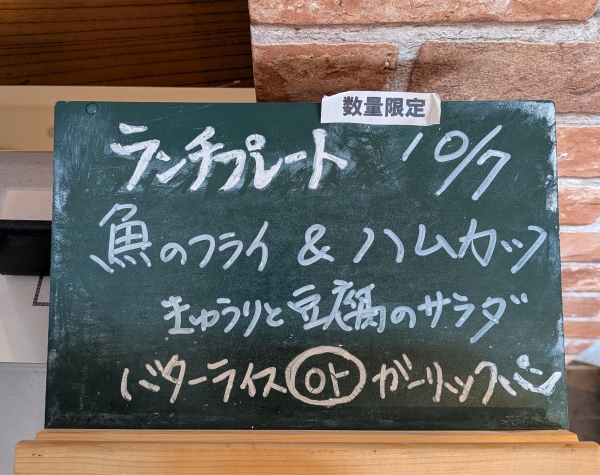 数量限定
ランチプレート 10/7
魚のフライ & ハムカツ
きゅうりと豆腐のサラダ
バターライス or ガーリックパン